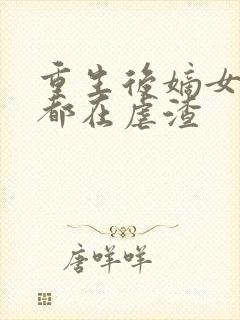 重生後嫡女
都在虐渣
唐咩咩